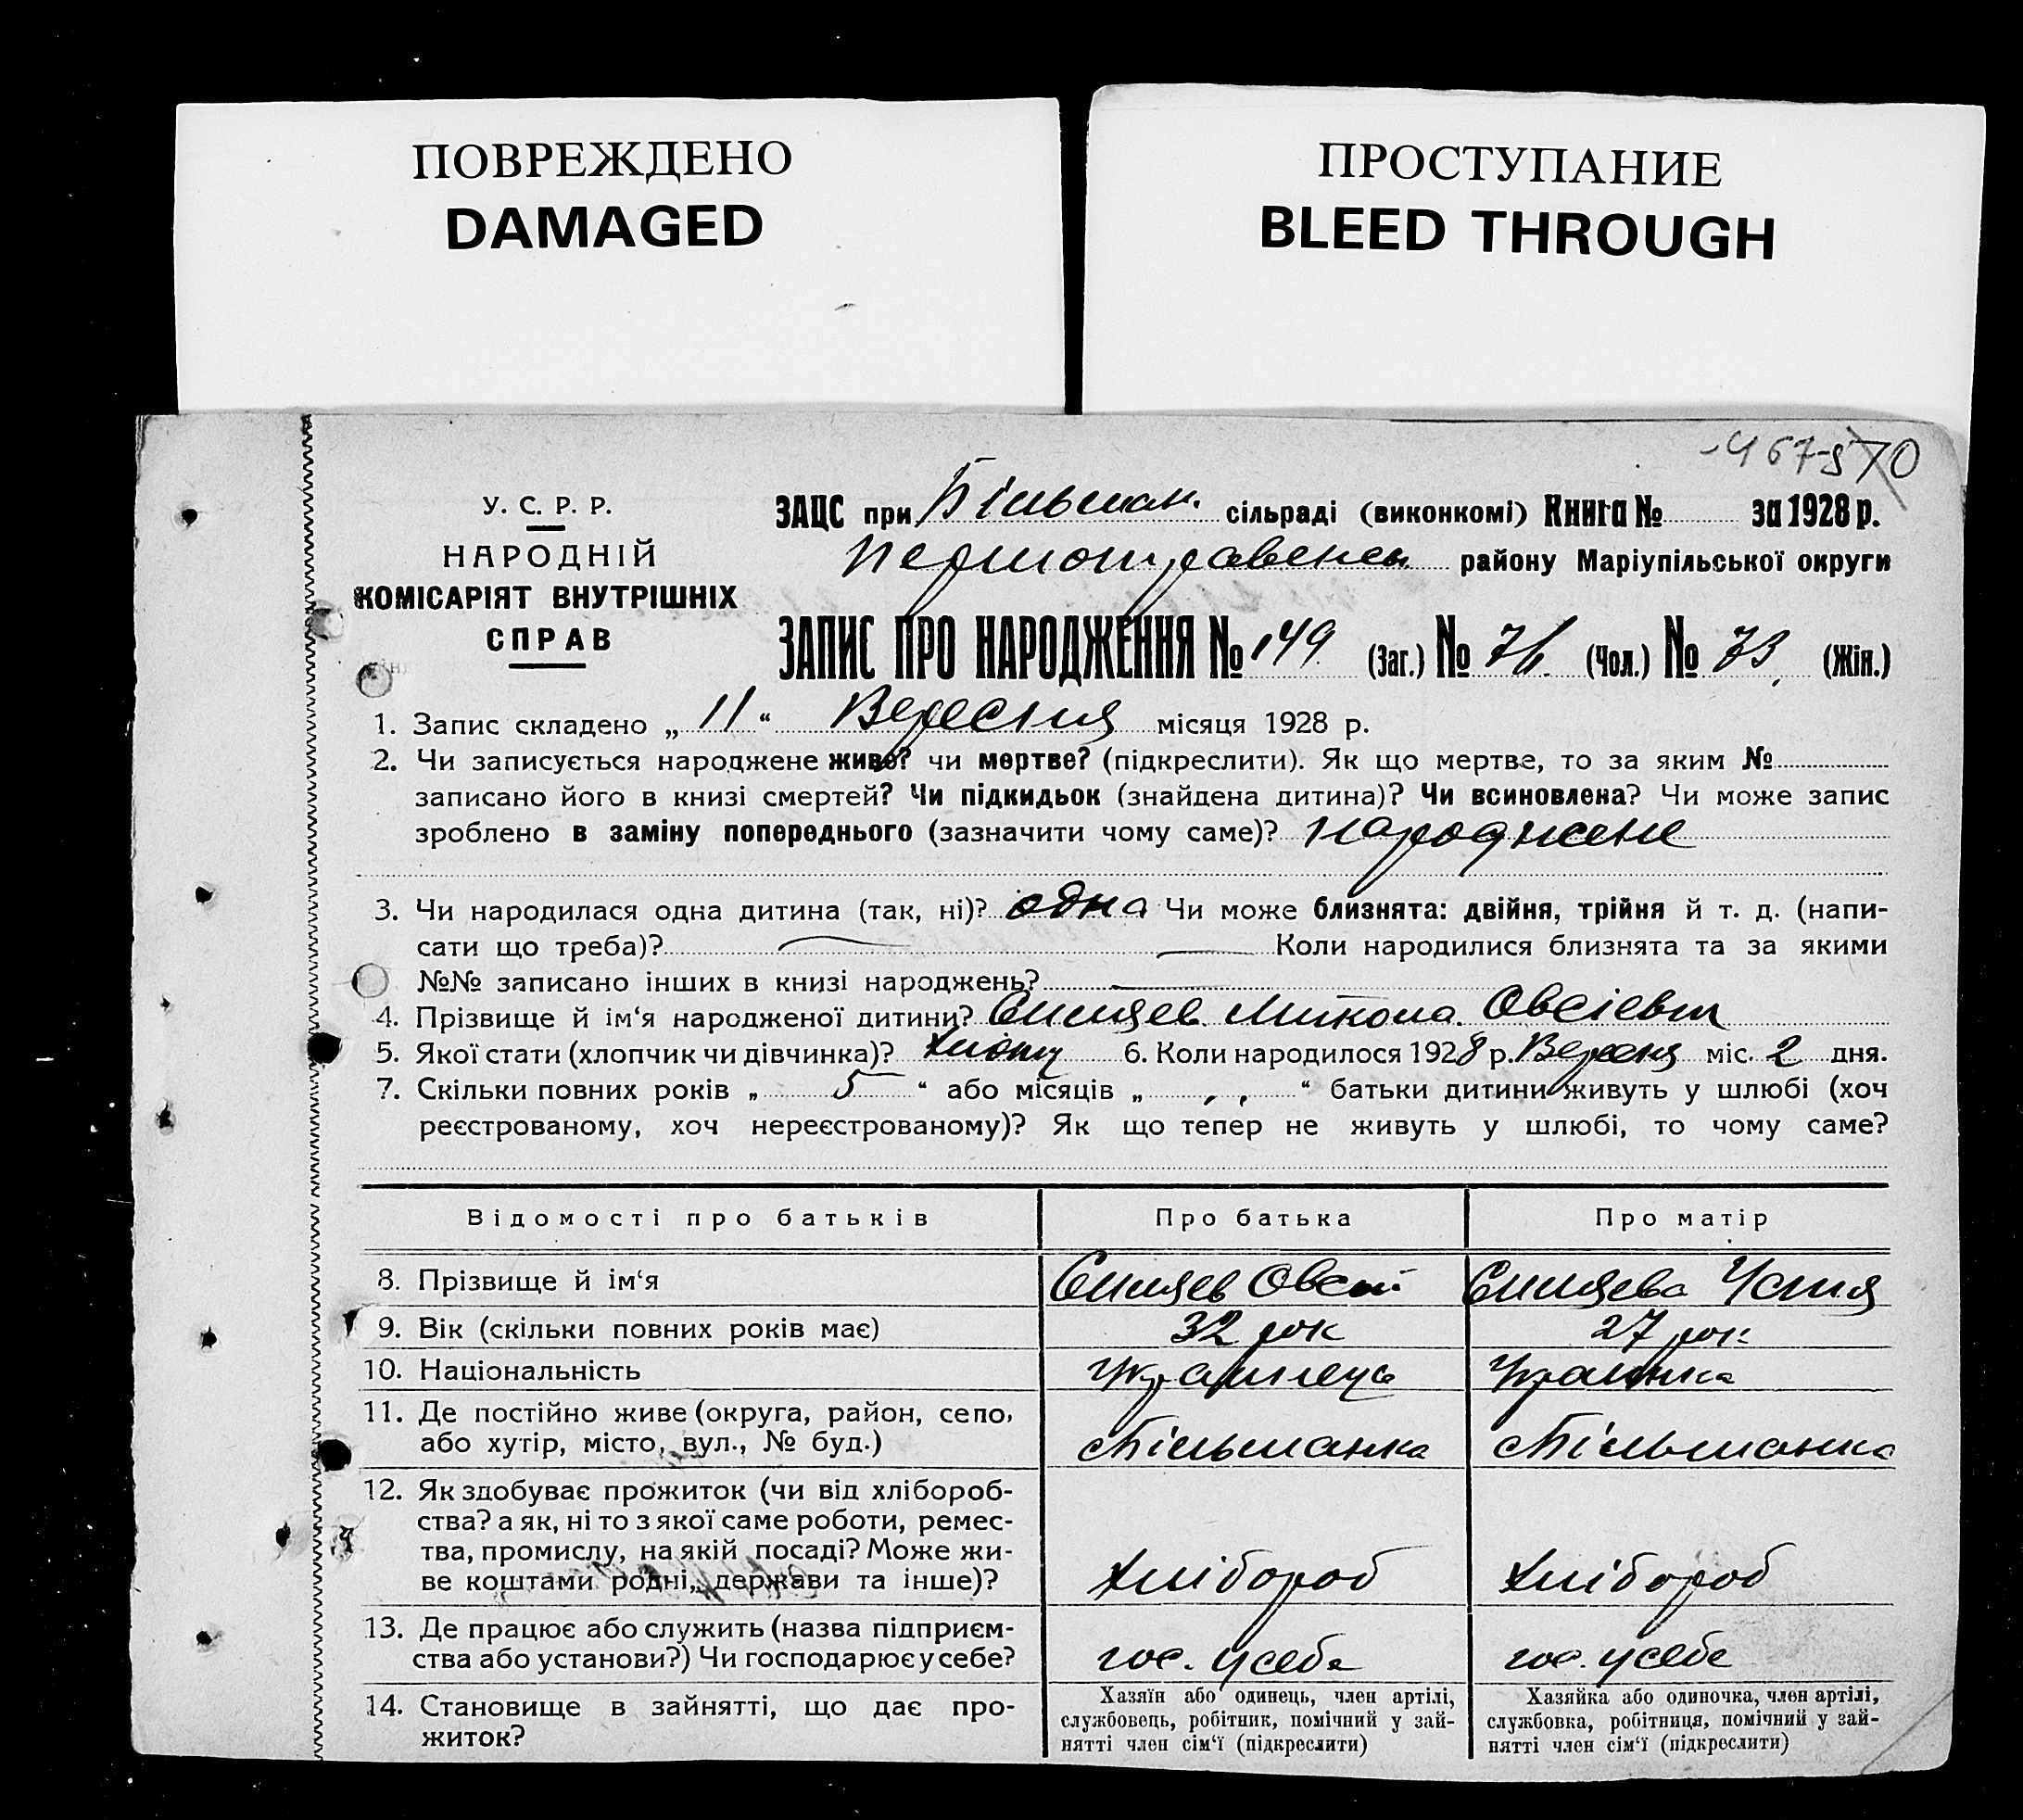 ПОВРЕЖДЕНО
DAMAGED
ПРОСТУПАНИЕ
BLEED THROUGH
У. С. Р. Р.
НАРОДНІЙ
КОМІСАРІЯТ ВНУТРІШНІХ
СПРАВ
ЗАЦС при Більшан. сільраді (виконкомі) Книга № за 1928 р.
Першотравенськ району Маріупільської округи
ЗАПИС ПРО НАРОДЖЕННЯ № 149. (Заг.) № 76. (Чол.) № 73. (Жін.)
1. Запис складено „ 11 “ Вересня місяця 1928 р.
2. Чи записується народжене живе? чи мертве? (підкреслити). Як що мертве, то за яким №
записано його в книзі смертей? Чи підкидьок (знайдена дитина)? Чи всиновлена? Чи може запис
зроблено в заміну попереднього (зазначити чому саме)? народжене
3. Чи народилася одна дитина (так, ні)? одна Чи може близнята: двійня, трійня й т. д. (напи-
сати що треба)? Коли народилися близнята та за якими
№№ записано інших в книзі народжень?
4. Прізвище й ім‘я народженої дитини? Микола Овсієвич
5. Якої стати (хлопчик чи дівчинка)? 6. Коли народилося 1928 р. Вересня міс. 2 дня.
7. Скільки повних років „ 5 “ або місяців „ “ батьки дитини живуть у шлюбі (хоч
реєстрованому, хоч нереєстрованому)? Як що тепер не живуть у шлюбі, то чому саме?
Відомості про батьків Про батька Про матір
8. Прізвище й ім‘я Овсій Устя
9. Вік (скільки повних років має) 32 рок 27 рок
10. Національність Українець Українка
11. Де постійно живе (округа, район, село,
або хутір, місто, вул., № буд.) Більшанка Більшанка
12. Як здобуває прожиток (чи від хлібороб-
ства? а як, ні то з якої саме роботи, ремес-
тва, промислу, на якій посаді? Може жи-
ве коштами родні, держави та інше)? Хлібороб Хлібороб
13. Де працює або служить (назва підприєм-
ства або установи?) Чи господарює у себе? гос. у себе гос. у себе
14. Становище в зайнятті, що дає про-
житок?
Хазяїн або одинець, член артілі,
службовець, робітник, помічний у зай-
нятті член сім‘ї (підкреслити)
Хазяйка або одиночка, член артілі,
службовка, робітниця, помічний у зай-
нятті член сім‘ї (підкреслити)